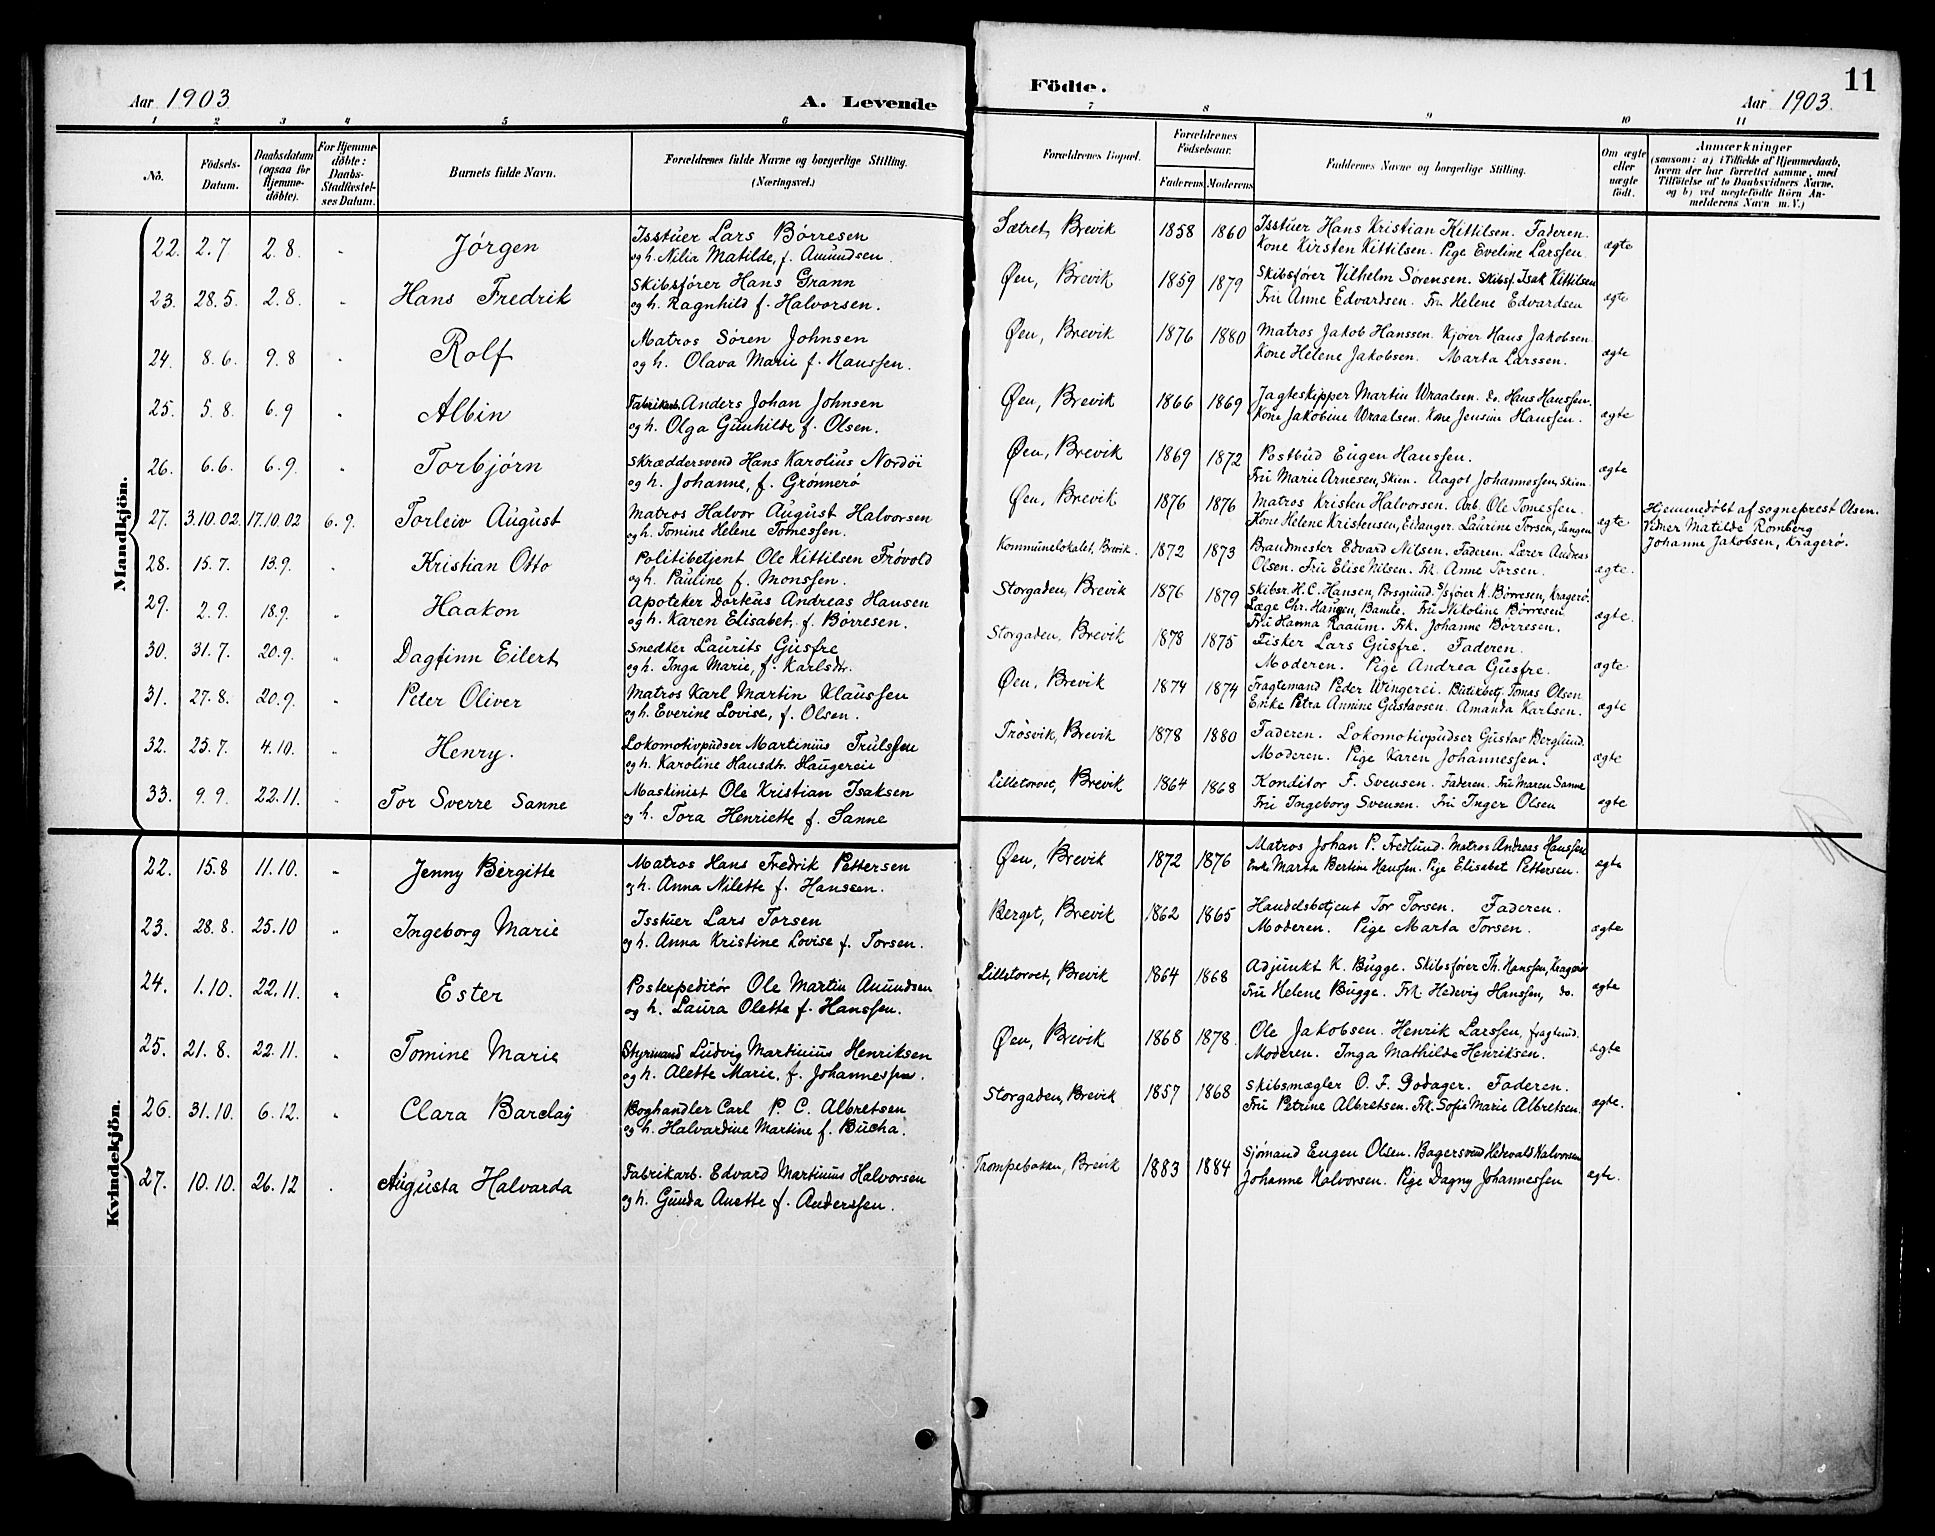 Aar 1903
A. Levende
Födte.
Aar 1903.
11
1 2 3 4 5 6 7 8 9 10 11
No.
Födsels-Datum.
Daabsdatum (ogsaa for Hjemme-döbte).
For Hjemme-döbte: Daabs-Stadfæstel-ses Datum.
Barnets fulde Navn.
Forældrenes fulde Navne og borgerlige Stilling. (Næringsvei.)
Forældrenes Bopæl.
Forældrenes Födselsaar.
Faderens Moderens
Faddernes Navne og borgerlige Stilling.
Om ægte eller uægte födt.
Anmærkninger
(saasom: a) i Tilfælde af Hjemmedaab, hvem der har forrettet samme, med Tilföielse af to Daabsvidners Navne, og b) ved uægtefödte Börn An-melderens Navn m. V.)
Mandkjön.
22. 2.7 2.8. " Jørgen
Isstuer Lars Børresen
og h. Nilia Matilde, f. Amundsen.
Sætret, Brevik 1858 1860
Isstuer Hans Kristian Kittilsen. Faderen.
Kone Kirsten Kittilsen. Pige Eveline Larssen. ægte
23. 28.5. 2.8. " Hans Fredrik
Skibsfører Hans Grann
og h. Ragnhild f. Halvorsen.
Øen, Brevik 1859 1879
Skibsfører Vilhelm Sørensen. Skibsf. Isak Kittilsen
Fru Anne Edvardsen. Fru Helene Edvardsen ægte
24. 8.6. 9.8 " Rolf
Matros Søren Johnsen
og h. Olava Marie f. Hanssen.
Øen, Brevik 1876 1880
Matros Jakob Hanssen. Kjører Hans Jakobsen
Kone Helene Jakobsen. Marta Larssen. ægte
25. 5.8. 6.9 " Albin
Fabrikarb. Anders Johan Johnsen
og h. Olga Gunhilde f. Olsen.
Øen, Brevik 1866 1869
Jagteskipper Martin Wraalsen. do. Hans Hanssen.
Kone Jakobine Wraalsen. Kone Jensine Hanssen. ægte
26. 6.6. 6.9. " Torbjørn
Skræddersvend Hans Karolius Nordöi
og h. Johanne, f. Grønnerø
Øen, Brevik 1869 1872
Postbud Eugen Hanssen.
Fru Marie Arnesen, Skien. Aagot Johannessen, Skien. ægte
27. 3.10.02. 17.10.02 6.9. Torleiv August
Matros Halvor August Halvorsen
og h. Tomine Helene Tomessen.
Øen, Brevik 1876 1876
Matros Kristen Halvorsen. Arb. Ole Tomessen.
Kone Helene Kristensen, Eidanger. Laurine Torsen, Langen ægte
Hjemmedøbt af sogneprest Olsen.
Vidner Matilde Romberg
Johanne Jakobsen, Kragerø.
28. 15.7. 13.9. " Kristian Otto
Politibetjent Ole Kittilsen Trøvold
og h. Pauline f. Monssen.
Kommunelokalet, Brevik. 1872 1873
Brandmester Edvard Nilsen. Faderen. Lærer Andreas
Olsen. Fru Elise Nilsen. Frk. Anne Torsen. ægte.
29. 2.9. 18.9. " Haakon
Apoteker Dorkus Andreas Hansen
og h. Karen Elisabet, f. Børresen.
Storgaden, Brevik 1876 1879
Skibsr. H. C. Hansen, Porsgrund. S/sfører K. Børresen, Kragerø.
Læge Chr. Haugen, Bamle. Fru Nikoline Børresen
Fru Hanna Raaum. Frk. Johanne Børresen. ægte.
30. 31.7. 20.9. " Dagfinn Eilert
Snedker Laurits Gusfre
og h. Inga Marie, f. Karlsdtr.
Storgaden, Brevik 1878 1875
Fisker Lars Gusfre. Faderen.
Moderen. Pige Andrea Gusfre. ægte
31. 27.8. 20.9. " Peter Oliver
Matros Karl Martin Klaussen
og h. Everine Lovise, f. Olsen.
Øen, Brevik 1874 1874
Fragtemand Peder Wingerei. Butikbetj. Tomas Olsen
Enke Petra Annine Gustavsen. Amanda Karlsen. ægte
32. 25.7. 4.10. " Henry.
Lokomotivpudser Martinius Trulssen
og h. Karoline Hansdtr. Haugereie
Trøsvik, Brevik 1878 1880
Faderen. Lokomotivpudser Gustav Berglund.
Moderen. Pige Karen Johannessen. ægte
33. 9.9. 22.11. " Tor Sverre Sanne
Maskinist Ole Kristian Isaksen
og h. Tora Henriette f. Sanne
Lilletorvet, Brevik 1864 1868
Konditor F. Svensen. Faderen. Fru Maren Sanne
Fru Ingeborg Svensen. Fru Inger Olsen ægte
Kvindekjön.
22. 15.8 11.10. " Jenny Bergitte
Matros Hans Fredrik Pettersen
og h. Anna Nilette f. Hanssen.
Øen, Brevik 1872 1876
Matros Johan P. Fredlund. Matros Andreas Hanssen
Enke Marta Bertine Hanssen. Pige Elisabet Pettersen. ægte
23. 28.8. 25.10 " Ingeborg Marie
Isstuer Lars Torsen
og h. Anna Kristine Lovise f. Torsen.
Berget, Brevik 1862 1865
Handelsbetjent Tor Torsen. Faderen.
Moderen. Pige Marta Torsen. ægte
24. 1.10. 22.11. " Ester
Postexpeditør Ole Martin Amundsen
og h. Laura Olette f. Hanssen.
Lilletorvet, Brevik 1864 1868
Adjunkt K. Bugge. Skibsfører Th. Hanssen, Kragerø
Fru Helene Bugge. Frk. Hedevig Hanssen, do. ægte
25. 21.8. 22.11. " Tomine Marie
Styrmand Ludvig Martinius Henriksen
og h. Alette Marie, f. Johannessen.
Øen, Brevik 1868 1878.
Ole Jakobsen. Henrik Larssen, fragtmd.
Moderen. Inga Mathilde Henriksen. ægte
26. 31.10. 6.12. " Clara Barclay
Boghandler Carl P. C. Albretsen
og h. Halvardine Martine f. Bucha.
Storgaden, Brevik 1857 1868
Skibsmægler O. F. Godager. Faderen.
Fru Petrine Albretsen. Frk. Sofie Marie Albretsen. ægte.
27. 10.10. 26.12 . Augusta Halvarda
Fabrikarb. Edvard Martinius Halvorsen
og h. Gunda Anette f. Anderssen.
Trompebakken, Brevik 1883 1884
Sjømand Eugen Olsen. Bagersvend Hedevald Halvorsen
Johanne Halvorsen. Pige Dagny Johannessen ægte.